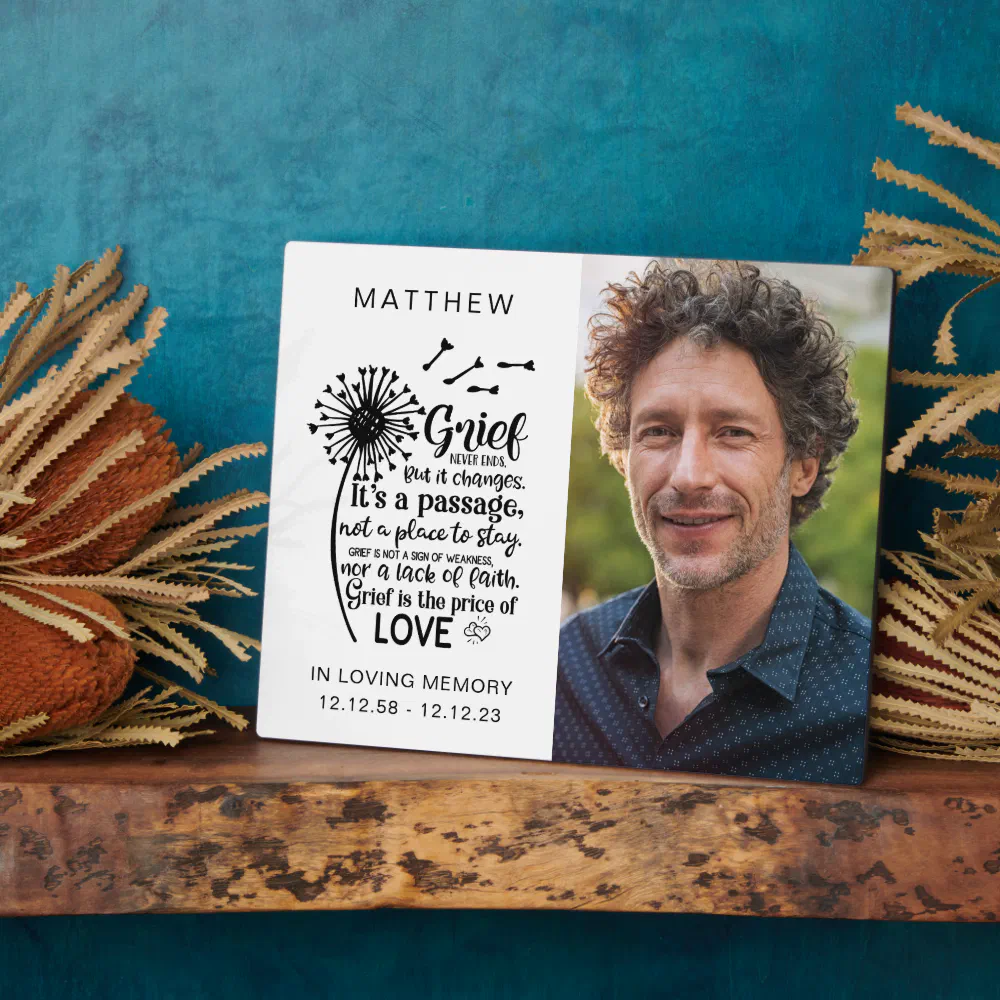 MATTHEW
Grief
NEVER ENDS,
But it changes.
It's a passage,
not a place to stay.
GRIEF IS NOT A SIGN OF WEAKNESS,
nor a lack of faith.
Grief is the price of
LOVE
IN LOVING MEMORY
12.12.58 - 12.12.23